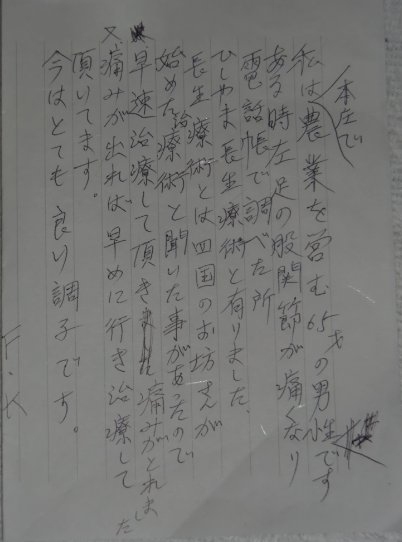 本庄で
私は農業を営む65才の男性です
ある時左足の股関節が痛くなり
電話帳で調べた所
ひしやま長生療術と有りました、
長生療術とは四国のお坊さんが
始めた治療術と聞いた事があったので
早速治療して頂き痛みがとれました
又、痛みが出れば早めに行き治療して
頂いてます。
今はとても良い調子です。
F・K